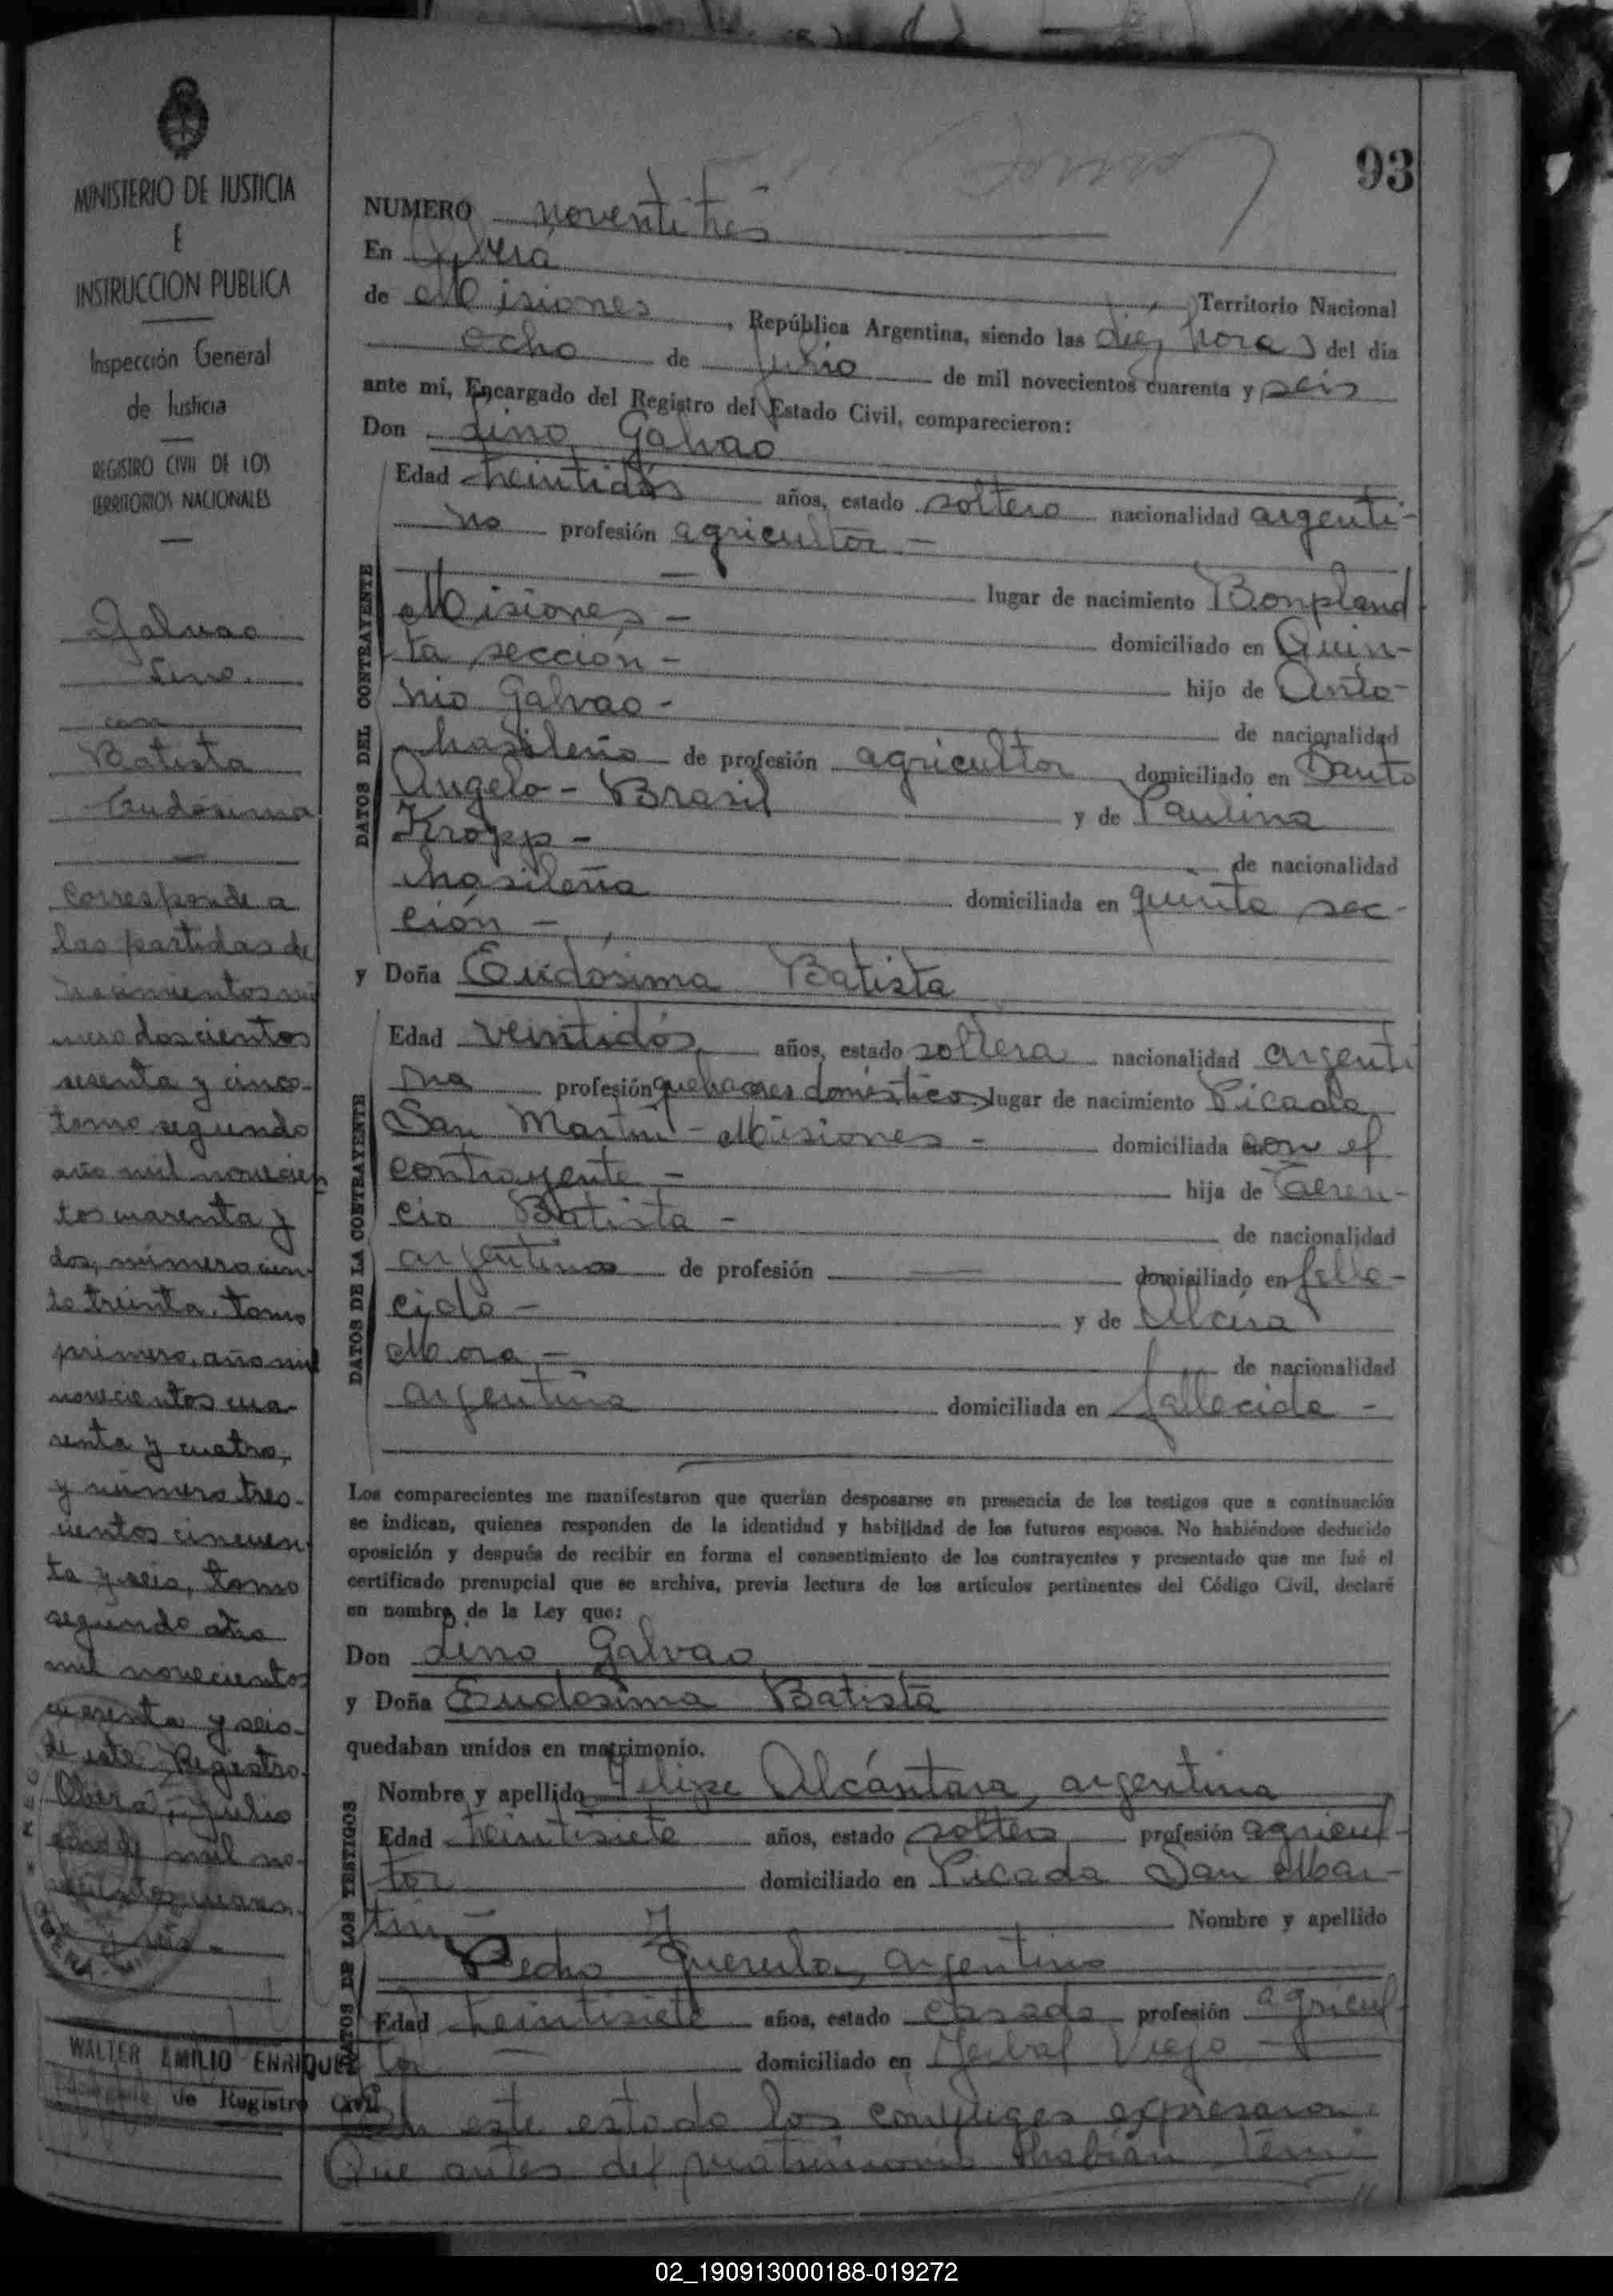 93
MINISTERIO DE JUSTICIA
E
INSTRUCCION PUBLICA
Inspección General
de Justicia
REGISTRO CIVIL DE LOS
TERRITORIOS NACIONALES
Galvao
Lino
con
Batista
Eudósima
Corresponde a
las partidas de
nacimientos nú
mero doscientos
sesenta y cinco
tomo segundo
año mil novecien
tos cuarenta y
dos, número cien
to treinta, tomo
primero, año mil
novecientos cua-
renta y cuatro,
y número tres-
cientos cincuen
ta y seis, tomo
segundo año
mil novecientos
cuarenta y seis
de este Registro.
Oberá, Julio
mil no-
vecientos cuaren
ta y seis -
WALTER EMILIO ENRIQUEZ
de Registro Civil
NUMERO noventitrés
En Oberá
, Territorio Nacional
de Misiones, República Argentina, siendo las diez horas del día
ocho de julio de mil novecientos cuarenta y seis
ante mí, Encargado del Registro del Estado Civil, comparecieron:
Don Lino Galvao
DATOS DEL CONTRAYENTE
Edad treintidós años, estado soltero nacionalidad argenti-
no profesión agricultor -
lugar de nacimiento Bonpland
Misiones - domiciliado en Quin-
ta sección - hijo de Anto-
nio Galvao - de nacionalidad
brasileño de profesión agricultor domiciliado en Santo
Angelo - Brasil y de Paulina
Kropp - de nacionalidad
brasileña domiciliada en quinta sec-
ción -
y Doña Eudósima Batista
DATOS DE LA CONTRAYENTE
Edad veintidós años, estado soltera nacionalidad argenti
na profesión quehaceres domésticos lugar de nacimiento Picada
San Martín - Misiones - domiciliada con el
contrayente - hija de Teren-
cio Batista - de nacionalidad
argentino de profesión domiciliado en falle-
cido - y de Alcira
Mora - de nacionalidad
argentina domiciliada en fallecida -
Los comparecientes me manifestaron que querían desposarse en presencia de los testigos que a continuación
se indican, quienes responden de la identidad y habilidad de los futuros esposos. No habiéndose deducido
oposición y después de recibir en forma el consentimiento de los contrayentes y presentado que me fué el
certificado prenupcial que se archiva, previa lectura de los artículos pertinentes del Código Civil, declaré
en nombre de la Ley que:
Don Lino Galvao
y Doña Eudosima Batista
quedaban unidos en matrimonio.
DATOS DE LOS TESTIGOS
Nombre y apellido Felipe Alcántara, argentino
Edad treintisiete años, estado soltero profesión agricul-
tor domiciliado en Picada San Mar-
tín - Nombre y apellido
Pedro argentino
Edad treintisiete años, estado casado profesión agricul-
tor - domiciliado en Yerbal Viejo
En este estado los cónyuges expresaron:
Que antes del matrimonio habían teni
02_190913000188-019272